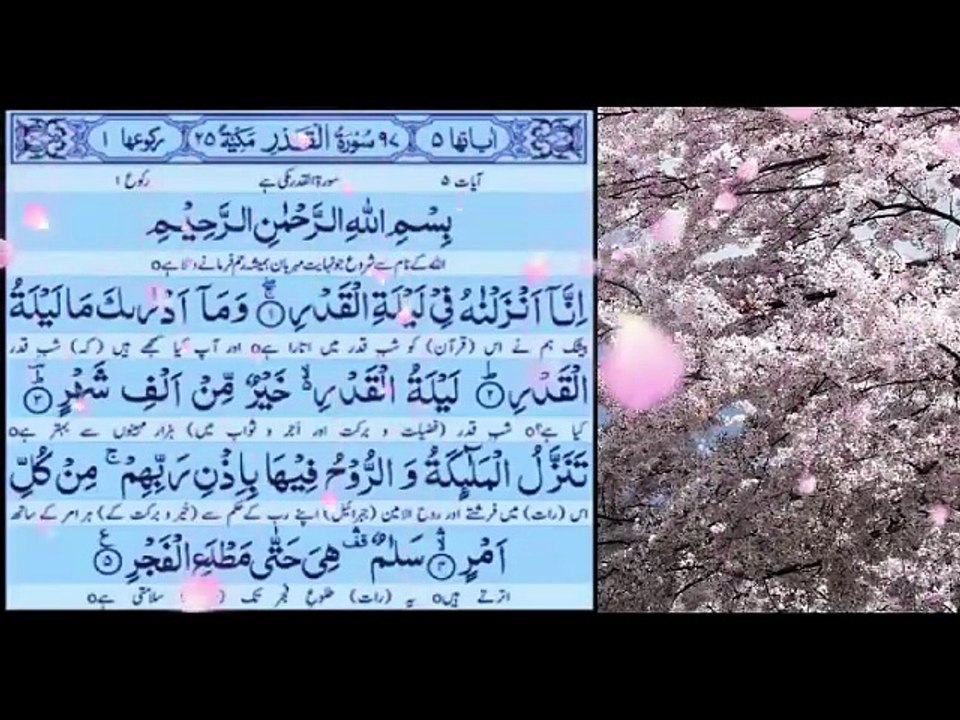 اٰیاتها ۵ ۹۷ سُوْرَةُ الْقَدْرِ مَكِّيَّةٌ ۲۵ رکوعها ۱
آیات ۵ سورۃ القدر مکی ہے رکوع ۱
بِسْمِ اللهِ الرَّحْمٰنِ الرَّحِيْمِ
اللہ کے نام سے شروع جو نہایت مہربان ہمیشہ رحم فرمانے والا ہے ۝
اِنَّاۤ اَنْزَلْنٰهُ فِیْ لَیْلَةِ الْقَدْرِ ۚۖ﴿۱﴾ وَمَاۤ اَدْرٰىكَ مَا لَیْلَةُ
بیشک ہم نے اس (قرآن) کو شبِ قدر میں اتارا ہے ۝ اور آپ کیا سمجھے ہیں (کہ) شبِ قدر
الْقَدْرِ ؕ﴿۲﴾ لَیْلَةُ الْقَدْرِ ۙ۬ خَیْرٌ مِّنْ اَلْفِ شَهْرٍ ؕ﴿۳﴾
کیا ہے؟ ۝ شبِ قدر (فضیلت و برکت اور اَجر و ثواب میں) ہزار مہینوں سے بہتر ہے ۝
تَنَزَّلُ الْمَلٰٓئِكَةُ وَ الرُّوْحُ فِیْهَا بِاِذْنِ رَبِّهِمْ ۚ مِنْ كُلِّ
اس (رات) میں فرشتے اور روح الامین (جبرائیل) اپنے رب کے حکم سے (خیر و برکت کے) ہر امر کے ساتھ
اَمْرٍ ۙۛ﴿۴﴾ سَلٰمٌ ۛ۫ هِیَ حَتّٰى مَطْلَعِ الْفَجْرِ ﴿۵﴾
اترتے ہیں ۝ یہ (رات) طلوعِ فجر تک سلامتی ہے ۝